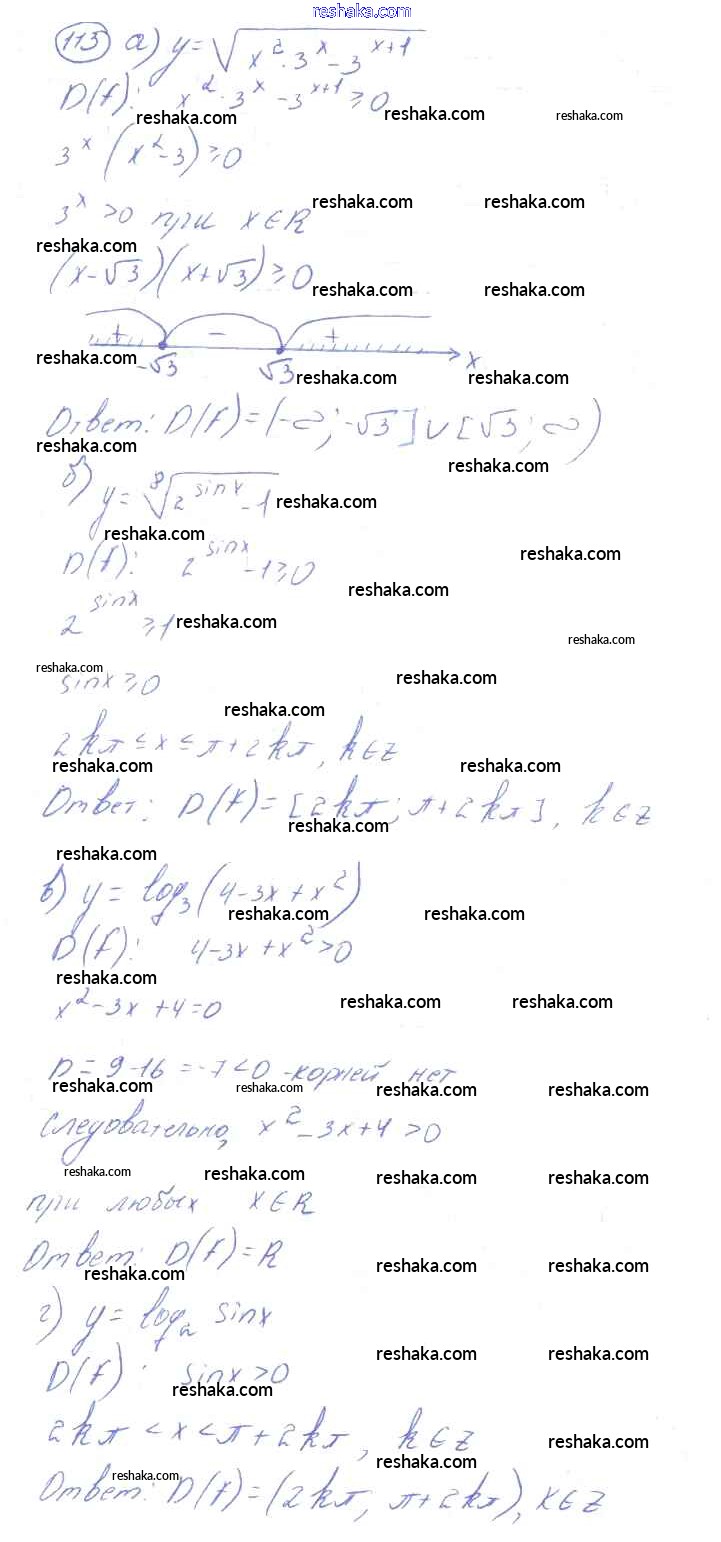 reshaka.com
113 а) y = √(x²·3ˣ - 3ˣ⁺¹)
D(f): x²·3ˣ - 3ˣ⁺¹ ≥ 0
reshaka.com reshaka.com reshaka.com
3ˣ (x² - 3) ≥ 0
3ˣ > 0 при x ∈ R
reshaka.com reshaka.com
reshaka.com
(x - √3)(x + √3) ≥ 0
reshaka.com reshaka.com
+ − +
reshaka.com
-√3 √3 x
reshaka.com reshaka.com
Ответ: D(f) = (-∞; -√3] ∪ [√3; ∞)
reshaka.com
reshaka.com
б) y = ⁸√(2^sinx - 1)
reshaka.com
reshaka.com
D(f): 2^sinx - 1 ≥ 0
reshaka.com
reshaka.com
2^sinx ≥ 1
reshaka.com
reshaka.com
reshaka.com
sinx ≥ 0
reshaka.com
reshaka.com
2kπ ≤ x ≤ π + 2kπ, k ∈ z
reshaka.com reshaka.com
Ответ: D(f) = [2kπ; π + 2kπ], k ∈ z
reshaka.com
reshaka.com
в) y = log₃(4 - 3x + x²)
reshaka.com reshaka.com
D(f): 4 - 3x + x² > 0
reshaka.com
x² - 3x + 4 = 0
reshaka.com reshaka.com
D = 9 - 16 = -7 < 0 - корней нет
reshaka.com reshaka.com reshaka.com reshaka.com
Следовательно, x² - 3x + 4 > 0
reshaka.com reshaka.com reshaka.com reshaka.com
при любых x ∈ R
Ответ: D(f) = R
reshaka.com reshaka.com reshaka.com
г) y = log₂ sinx
reshaka.com reshaka.com
D(f): sinx > 0
reshaka.com
2kπ < x < π + 2kπ, k ∈ z
reshaka.com
reshaka.com
reshaka.com
Ответ: D(f) = (2kπ; π + 2kπ), k ∈ z